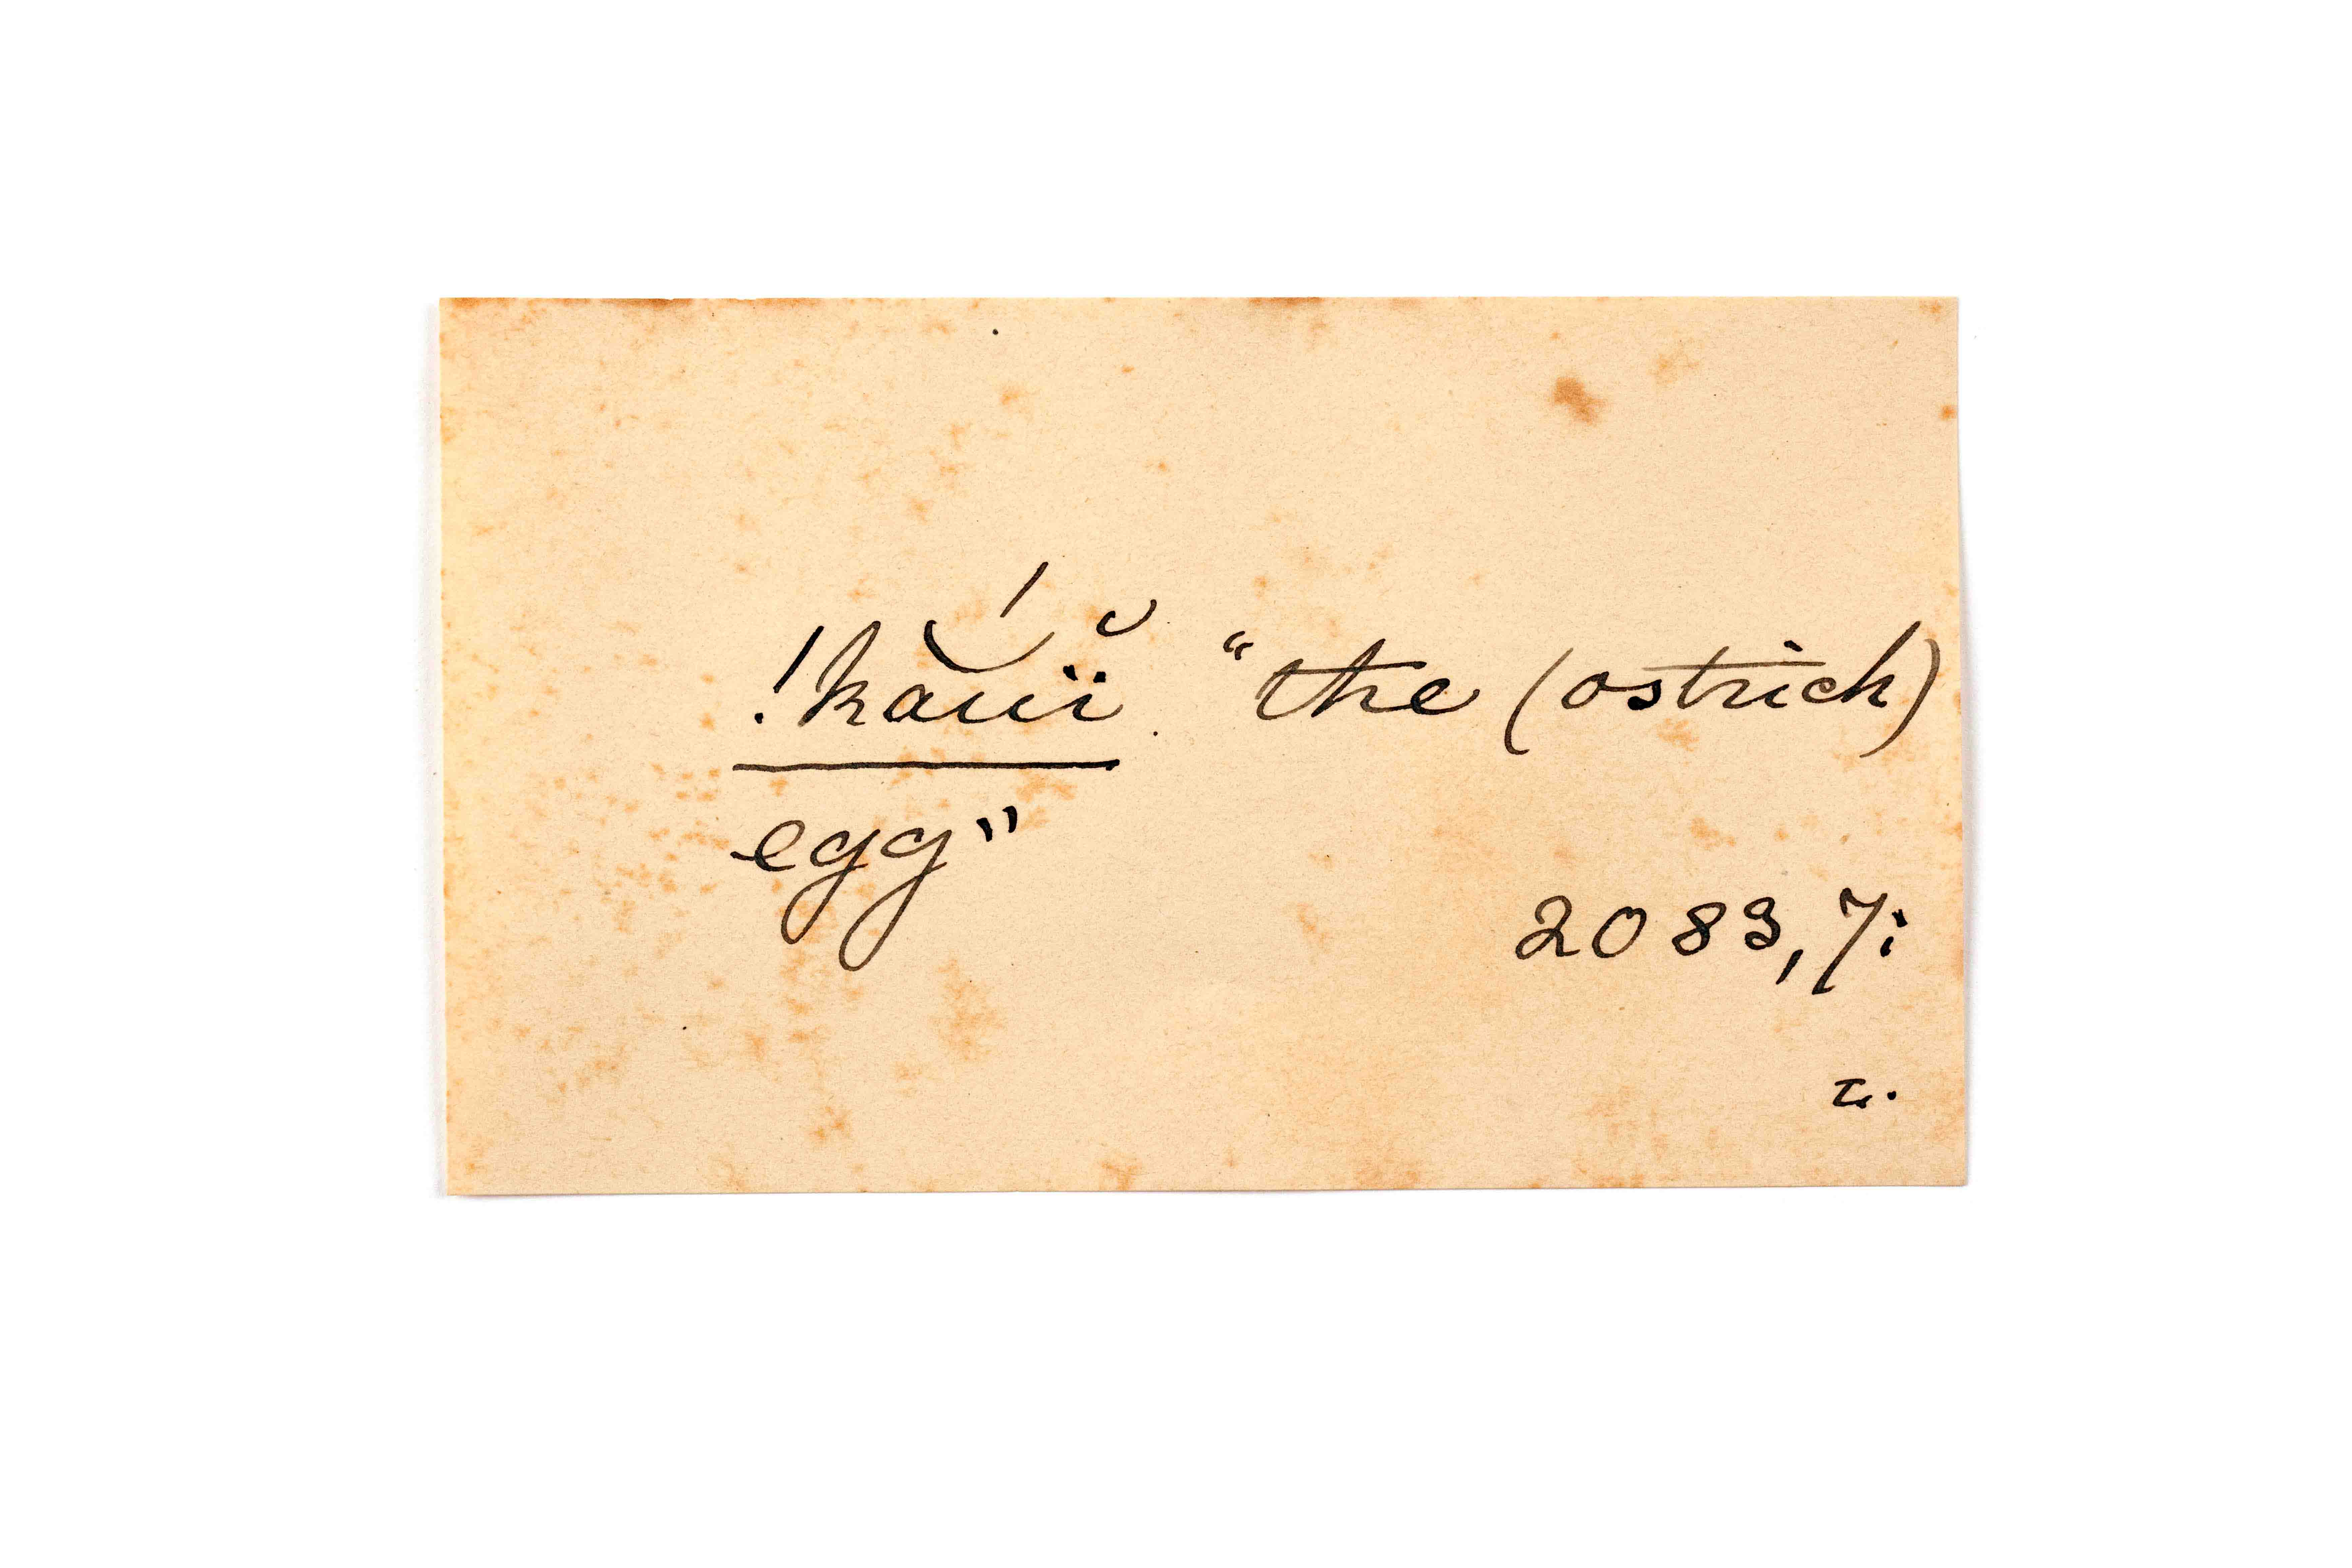 !kắuïı̆. "the (ostrich)
egg"
2083, 7:
L.